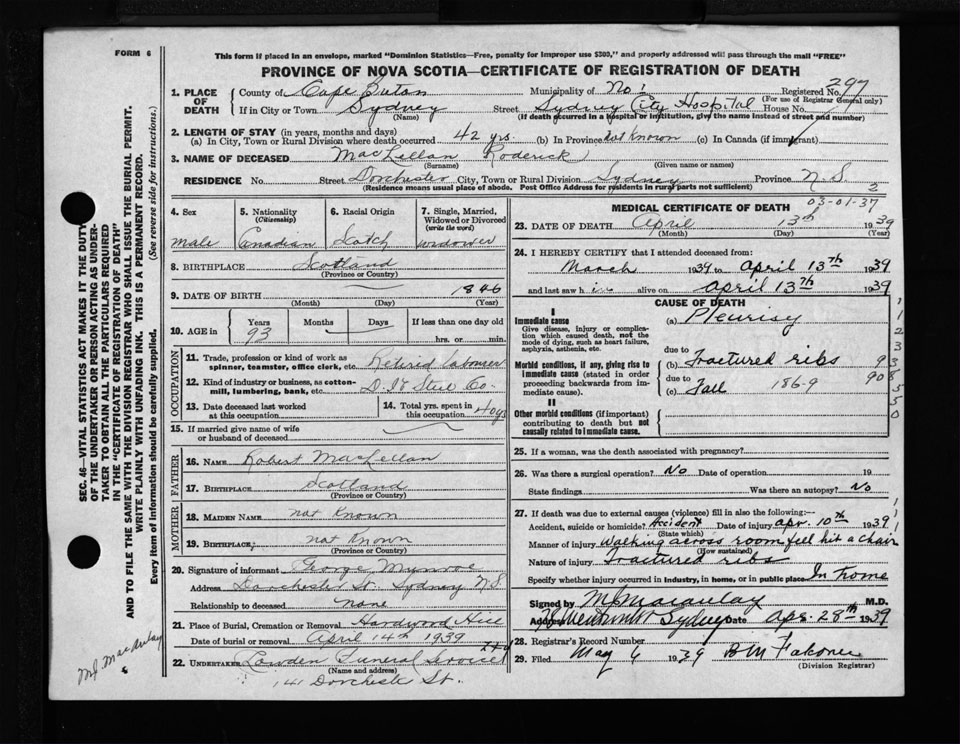 FORM 6
This form if placed in an envelope, marked "Dominion Statistics—Free, penalty for improper use $300," and properly addressed will pass through the mail "FREE"
PROVINCE OF NOVA SCOTIA—CERTIFICATE OF REGISTRATION OF DEATH
1. PLACE OF DEATH
County of Cape Breton Municipality of No. 1 Registered No. 297
(For use of Registrar General only)
If in City or Town Sydney Street Sydney City Hospital House No.
(Name) (If death occurred in a hospital or institution, give the name instead of street and number)
2. LENGTH OF STAY (in years, months and days)
(a) In City, Town or Rural Division where death occurred 42 yrs. (b) In Province not Known (c) In Canada (if immigrant)
3. NAME OF DECEASED MacLellan Roderick
(Surname) (Given name or names)
RESIDENCE No. Street Dorchester City, Town or Rural Division Sydney Province N.S.
(Residence means usual place of abode. Post Office Address for residents in rural parts not sufficient) 2
4. Sex
male
5. Nationality (Citizenship)
Canadian
6. Racial Origin
Scotch
7. Single, Married, Widowed or Divorced (write the word)
widower
8. BIRTHPLACE Scotland
(Province or Country)
9. DATE OF BIRTH 1846
(Month) (Day) (Year)
10. AGE in Years Months Days If less than one day old
93 hrs. or min.
OCCUPATION
11. Trade, profession or kind of work as spinner, teamster, office clerk, etc. Retired laborer
12. Kind of industry or business, as cotton-mill, lumbering, bank, etc. Steel Co.
13. Date deceased last worked at this occupation
14. Total yrs. spent in this occupation
15. If married give name of wife or husband of deceased
FATHER
16. Name Robert MacLellan
17. Birthplace Scotland
(Province or Country)
MOTHER
18. Maiden Name not Known
19. Birthplace not Known
(Province or Country)
20. Signature of informant George Munroe
Address Dorchester St. Sydney N.S.
Relationship to deceased none
21. Place of Burial, Cremation or Removal Hardwood Hill
Date of burial or removal April 14th 1939
22. UNDERTAKER Lowden Funeral Service Ltd
(Name and address)
141 Dorchester St.
MEDICAL CERTIFICATE OF DEATH 03-01-37
23. DATE OF DEATH April 13th 1939
(Month) (Day) (Year)
24. I HEREBY CERTIFY that I attended deceased from:
March 1939 to April 13th 1939
and last saw him alive on April 13th 1939
CAUSE OF DEATH
I
Immediate cause (a) Pleurisy
Give disease, injury or complication which caused death, not the mode of dying, such as heart failure, asphyxia, asthenia, etc.
due to
Morbid conditions, if any, giving rise to immediate cause (stated in order proceeding backwards from immediate cause).
(b) Fractured ribs
due to
(c) Fall 186-9
II
Other morbid conditions (if important) contributing to death but not causally related to immediate cause.
25. If a woman, was the death associated with pregnancy?
26. Was there a surgical operation? No Date of operation 19
State findings Was there an autopsy? No
27. If death was due to external causes (violence) fill in also the following:—
Accident, suicide or homicide? Accident Date of injury Apr. 10th 1939
(State which)
Manner of injury Walking across room fell hit a chair
(How sustained)
Nature of injury Fractured ribs
Specify whether injury occurred in industry, in home, or in public place In home
Signed by M J Macaulay M.D.
Address Sydney Date Apr. 28th 1939
28. Registrar's Record Number
29. Filed May 6 1939 B M Falconer
(Division Registrar)
SEC. 46—VITAL STATISTICS ACT MAKES IT THE DUTY
OF THE UNDERTAKER OR PERSON ACTING AS UNDER-
TAKER TO OBTAIN ALL THE PARTICULARS REQUIRED
IN THE "CERTIFICATE OF REGISTRATION OF DEATH"
AND TO FILE THE SAME WITH THE DIVISION REGISTRAR WHO SHALL ISSUE THE BURIAL PERMIT.
WRITE PLAINLY WITH UNFADING INK. THIS IS A PERMANENT RECORD.
Every item of information should be carefully supplied. (See reverse side for instructions.)
MJ MacAulay